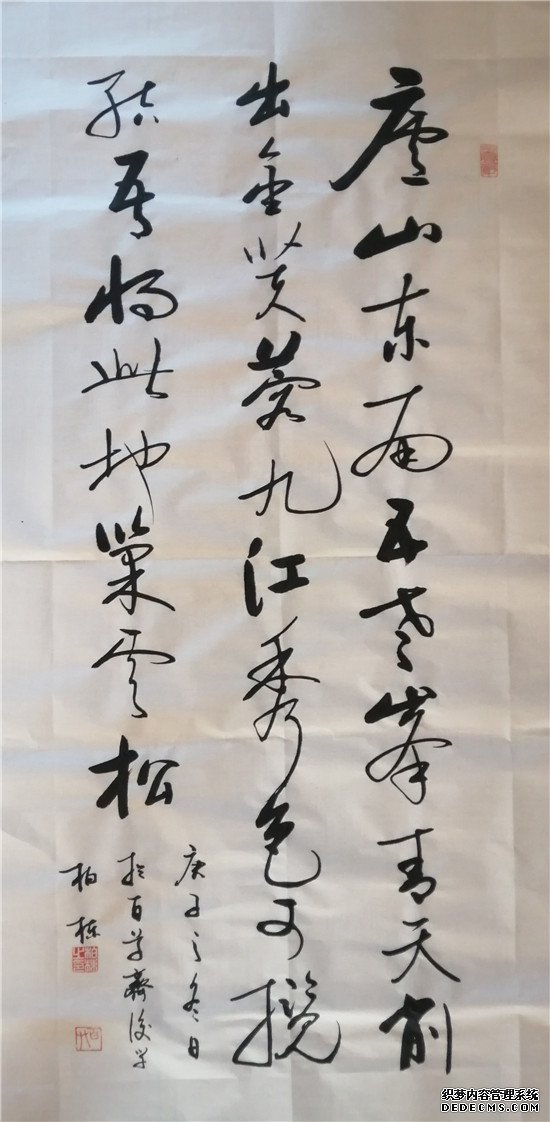 廬山东南五老峰青天削
出金芙蓉九江秀色可揽
结吾将此地巢雲松
庚子之冬日
於百草齋後学
柏栋
织梦内容管理系统
DEDECMS.COM